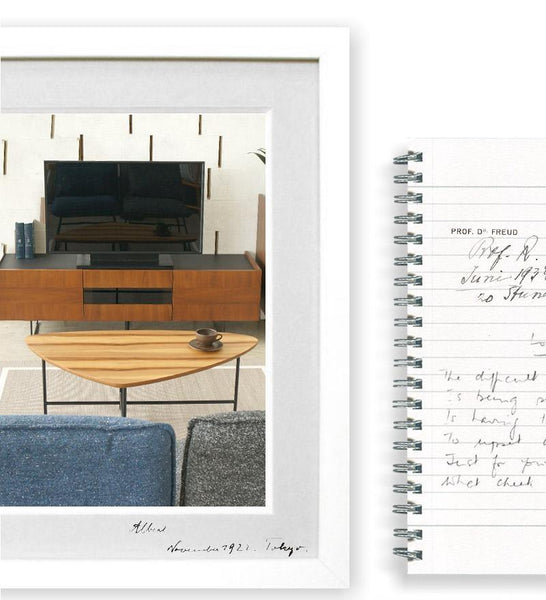 Albert
November 1922. Tokyo.
PROF. DR. FREUD
Prof. R.
Juni 193
20 Stun
Lo
The difficult
is being
is having t
To upset
Just for
what cheek